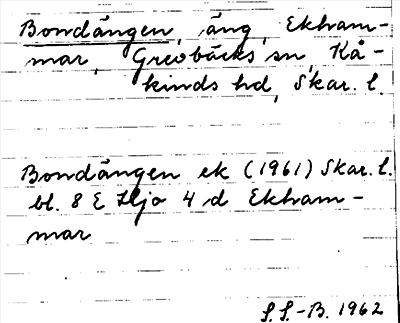 Bondängen, äng, Ekham-
mar, Grevbäcks sn, Kå-
kinds hd, Skar. l.
Bondängen ek (1961) Skar. l.
bl. 8 E Hjo 4 d Ekham-
mar
S.S.-B. 1962